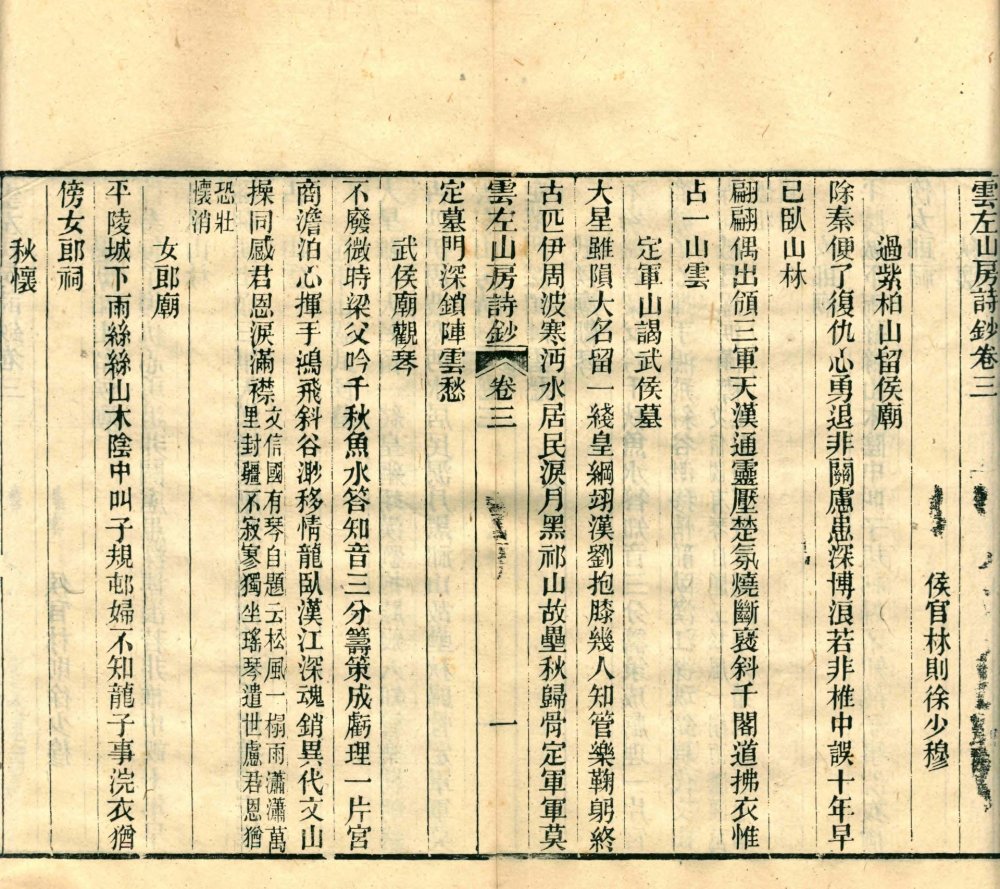 雲左山房詩鈔卷三
侯官林則徐少穆
過紫柏山留侯廟
除秦便了復仇心勇退非關慮患深博浪若非椎中誤十年早
已臥山林
翩翩偶出領三軍天漢通靈壓楚氛燒斷褒斜千閣道拂衣惟
占一山雲
定軍山謁武侯墓
大星雖隕大名留一綫皇綱翊漢劉抱膝幾人知管樂鞠躬終
古匹伊周波寒沔水居民淚月黑祁山故壘秋歸骨定軍軍莫
雲左山房詩鈔 卷三 一
定墓門深鎖陣雲愁
武侯廟觀琴
不廢微時梁父吟千秋魚水答知音三分籌策成虧理一片宮
商澹泊心揮手鴻飛斜谷渺移情龍臥漢江深魂銷異代文山
操同感君恩淚滿襟文信國有琴自題云松風一榻雨瀟瀟萬
里封疆不寂寥獨坐瑤琴遣世慮君恩猶
恐壯
懷消
女郎廟
平陵城下雨絲絲山木陰中叫子規邨婦不知龍子事浣衣猶
傍女郎祠
秋懷